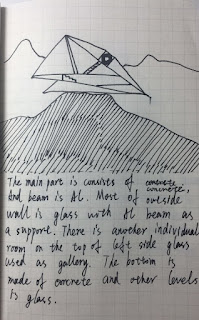 The main part is consists of concrete concrete,
And beam is AL. Most of outside
wall is glass with Al beam as
a support. There is another, individual
room on the top of left side glass
used as gallery. The bottom is
made of concrete and other levels
is glass.